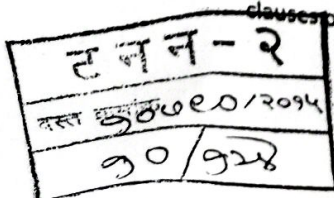 clauses
ट न न - २
दस्त क्रमांक १०७९०/२०१५
१०/१२४